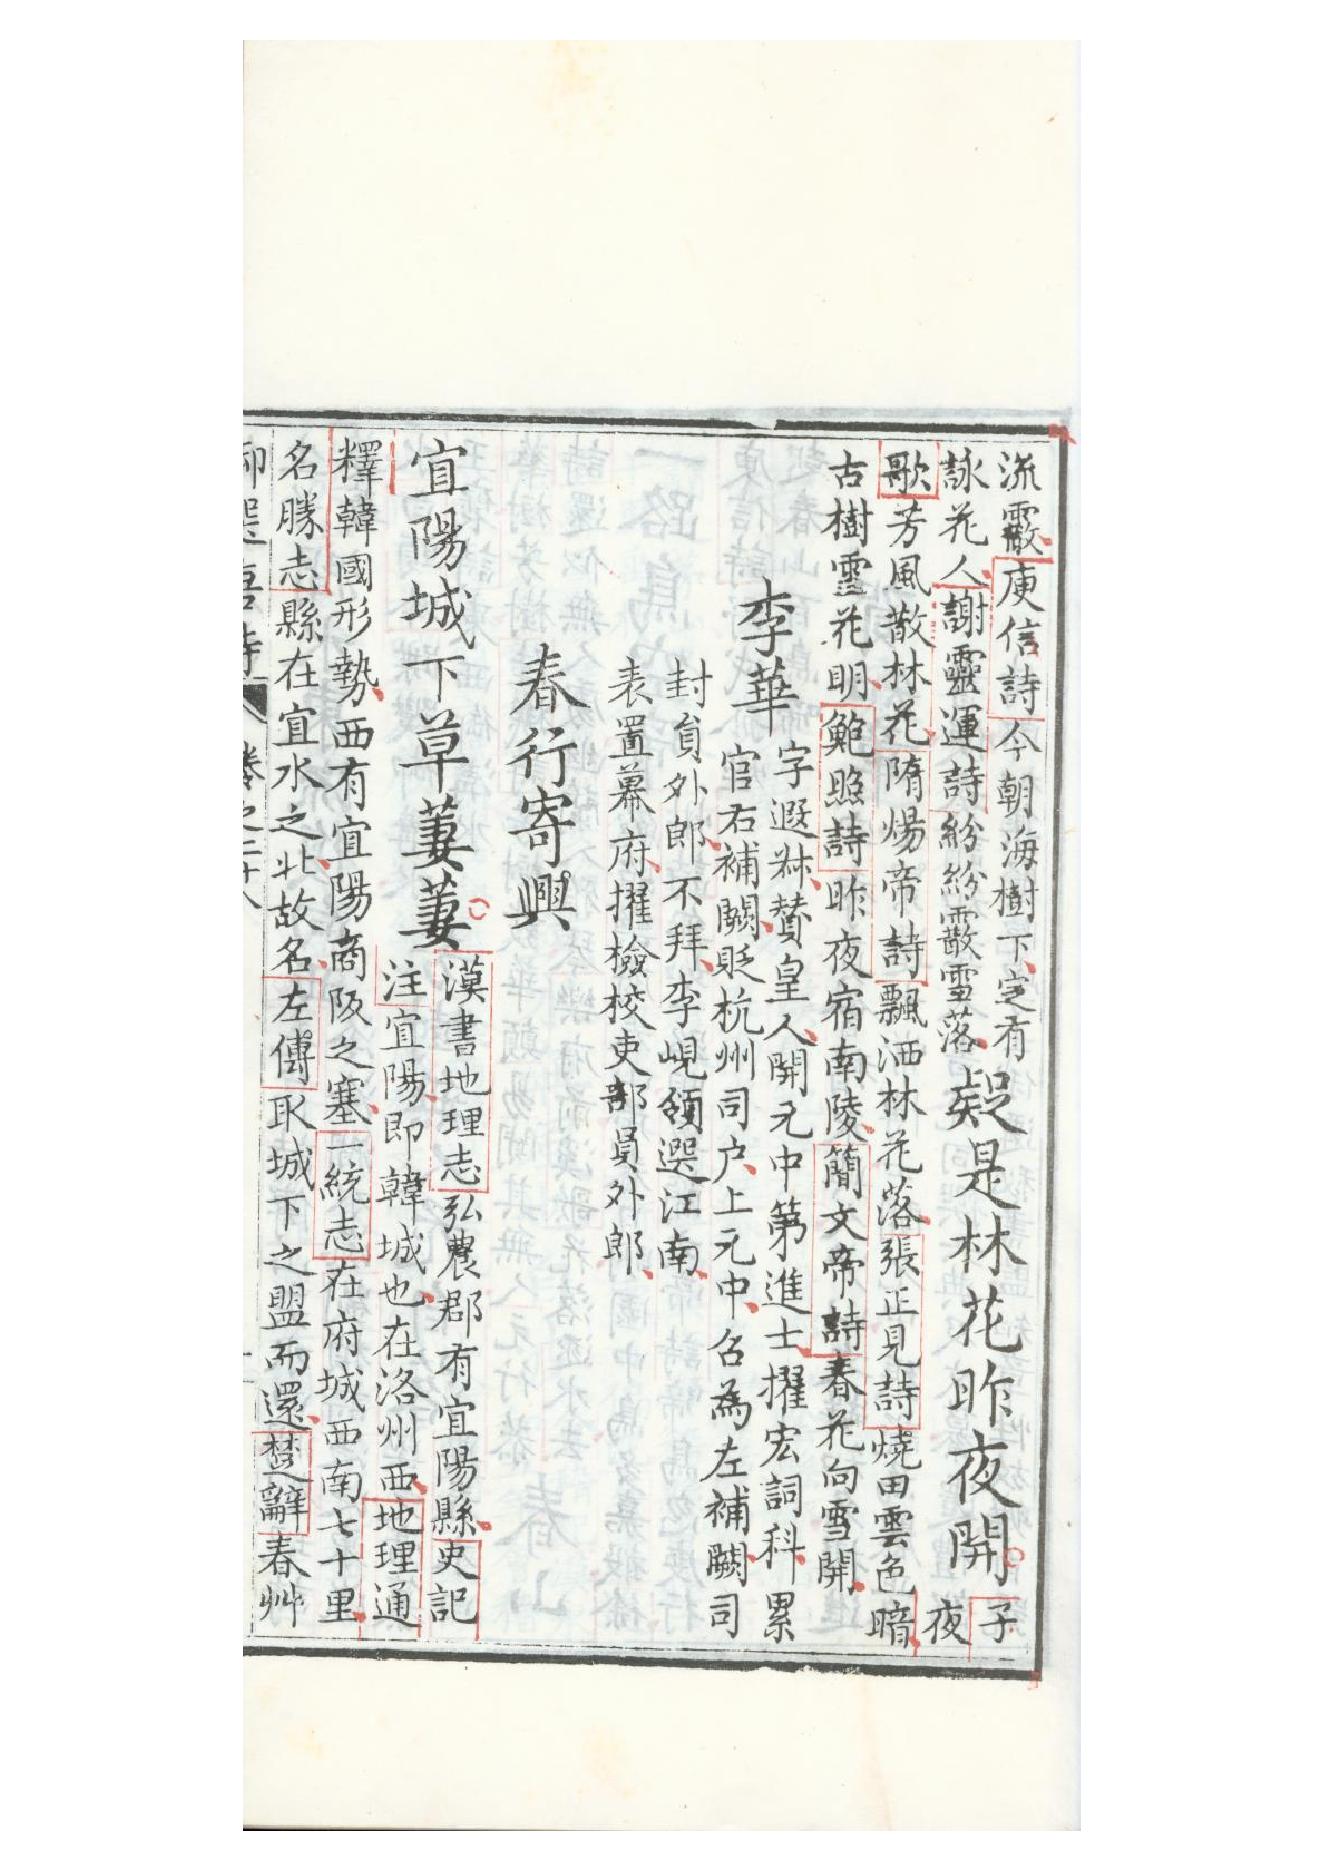 流霰庾信詩今朝海樹下定有
詠花人謝靈運詩紛紛霰雪落
疑是林花昨夜開
子
夜
歌芳風散林花隋煬帝詩飄洒林花落張正見詩燒田雲色暗
古樹雪花明鮑照詩昨夜宿南陵簡文帝詩春花向雪開
李華
字遐叔贊皇人開元中第進士擢宏詞科累
官右補闕貶杭州司户上元中召為左補闕司
封員外郎不拜李峴領選江南
表置幕府擢檢校吏部員外郎
春行寄興
宜陽城下草萋萋
漢書地理志弘農郡有宜陽縣史記
注宜陽即韓城也在洛州西地理通
釋韓國形勢西有宜陽商阪之塞一統志在府城西南七十里
名勝志縣在宜水之北故名左傳取城下之盟而還楚辭春艸